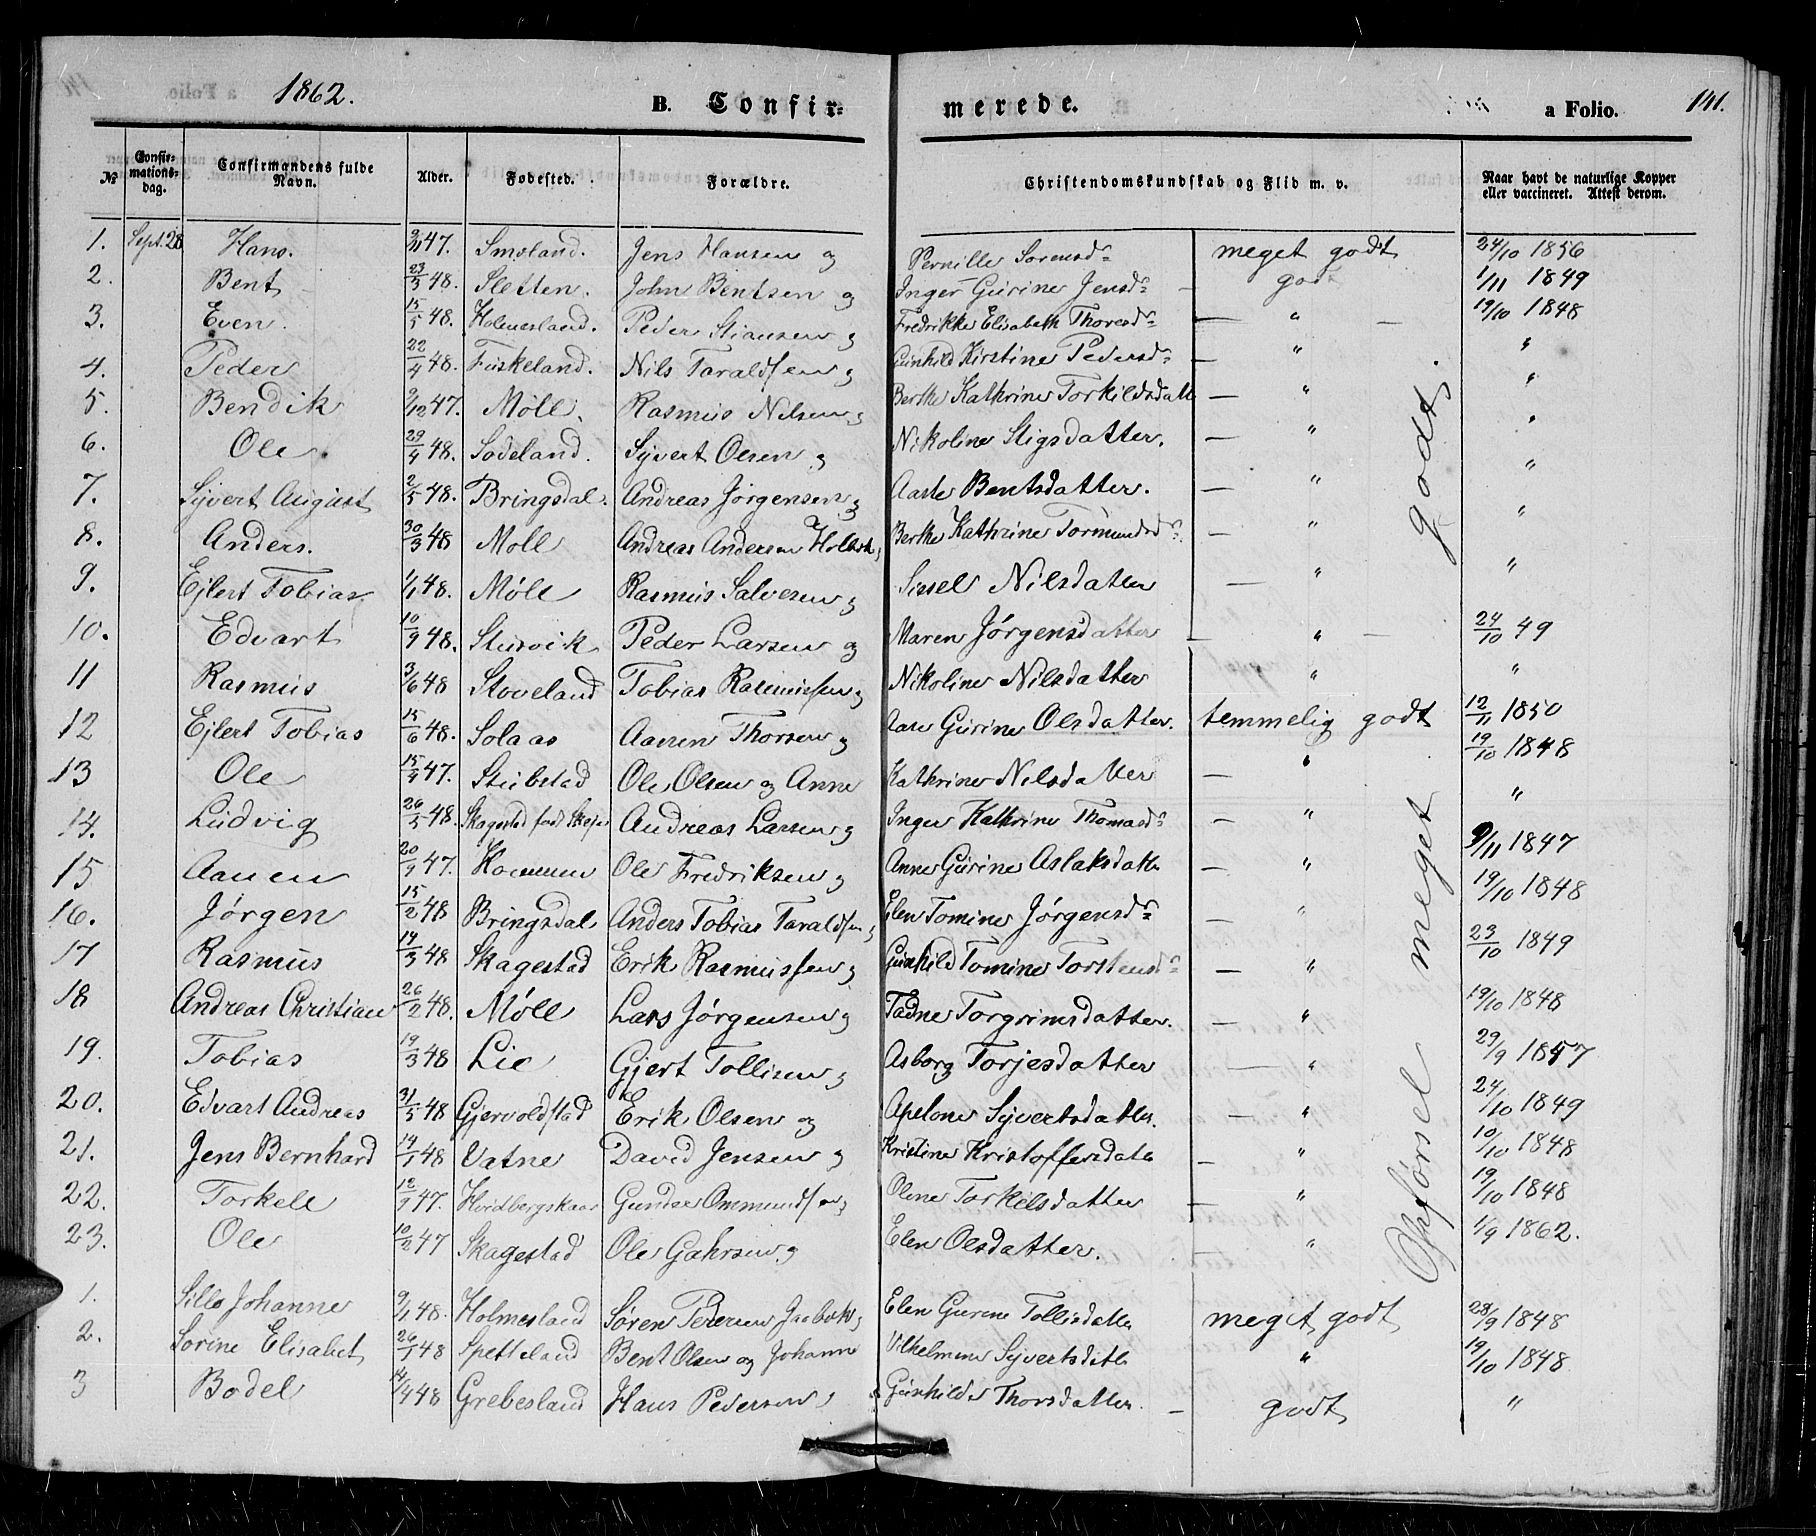 1862. B. Confirmerede. a Folio. 141.
№ Confirmationsdag. Confirmandens fulde Navn. Alder. Fødested. Forældre. Christendomskundskab og Flid m. v. Naar havt de naturlige Kopper eller vaccineret. Attest derom.
1. Sept. 28 Hans. 9/11 47. Smsland. Jens Hansen og Pernille Sorensdr meget godt 24/10 1856
2. Bent 23/3 48. Sletten. John Bentsen og Inger Gurine Jensdr — godt 1/11 1849
3. Even. 15/5 48. Holmesland. Peder Stiansen og Fredrikke Elisabeth Thoresdr — " — 19/10 1848
4. Peder 22/4 48. Fuskeland. Nils Taraldsen og Gunhild Kirstine Pedersdr — " "
5. Bendik 9/12 47. Möll. Rasmus Nilsen og Berthe Kathrine Torkildsdatt — " "
6. Ole. 29/4 48. Sodeland. Syvert Olsen og Nikoline Stigsdatter. — " "
7. Syvert August 2/5 48. Bringsdal. Andreas Jørgensen og Aaste Bentsdatter. — " "
8. Anders. 30/3 48 Moll Andreas Andersen og Berthe Kathrine Tormundsdr. — " "
9. Ejlert Tobias 1/1 48. Möll Rasmus Salvesen og Sissel Nilsdatter — " "
10. Edvart 10/9 48. Stusvik Peder Larsen og Maren Jørgensdatter — " — 24/10 49
11 Rasmus 3/6 48 Stoveland Tobias Rasmussen og Nikoline Nilsdatter " "
12 Ejlert Tobias 15/6 48. Solaas Aanen Thorsen og Aase Gurine Olsdatter. temmelig godt 12/11 1850
13 Ole 15/9 47. Stubstad Ole Olsen og Anne Kathrine Nilsdatter — " 19/10 1848
14. Ludvig 26/5 48. Skagestad født Andreas Larsen og Inger Kathrine Thomasdr — " "
15 Aanen 20/9 47. Ole Fredriksen og Anne Gurine Aslaksdatte — " 9/11 1847
16. Jørgen 15/2 48 Bringsdal Anders Tobias Taraldsen og Elen Tomine Jørgensdr — " 19/10 1848
17 Rasmus 14/3 48 Skagestad Erik Rasmussen og Gunhild Tomine Torstensdr — " 23/10 1849
18 Andreas Christian 26/2 48. Möll Lars Jørgensen og Tadne Torgrimsdatter. — " 19/10 1848
19. Tobias 19/3 48 Lie Gjert Tollisen og Asborg Torjesdatter — " 29/9 1857
20. Edvart Andreas 31/5 48 Gjervoldstad Erik Olsen og Apelone Syvertsdatte. — " 24/10 1849
21. Jens Bernhard 19/1 48 Vatne David Jensen og Kristine Kristoffersdatte — " 10/10 1848
22. Torkell 12/9 47. Gunder Ommundsen og Oline Torkelsdatter — " 19/10 1848
23. Ole 10/2 47 Skagestad Ole Gahrsen og Elen Olsdatter. — " 1/9 1862.
Opførsel meget godt.
1. Sille Johanne 9/1 48. Holmesland Søren og Elen Gurine Tollisdatte meget godt 28/9 1848
2. Sorine Elisabet 26/1 48 Spetteland Bent Olsen og Johanne Vilhelmine Syvertsdatte " 19/10 1848
3 Bodel 14/9 48 Grebesland Hans Pedersen & Gunhilde Thorsdatter. — godt "